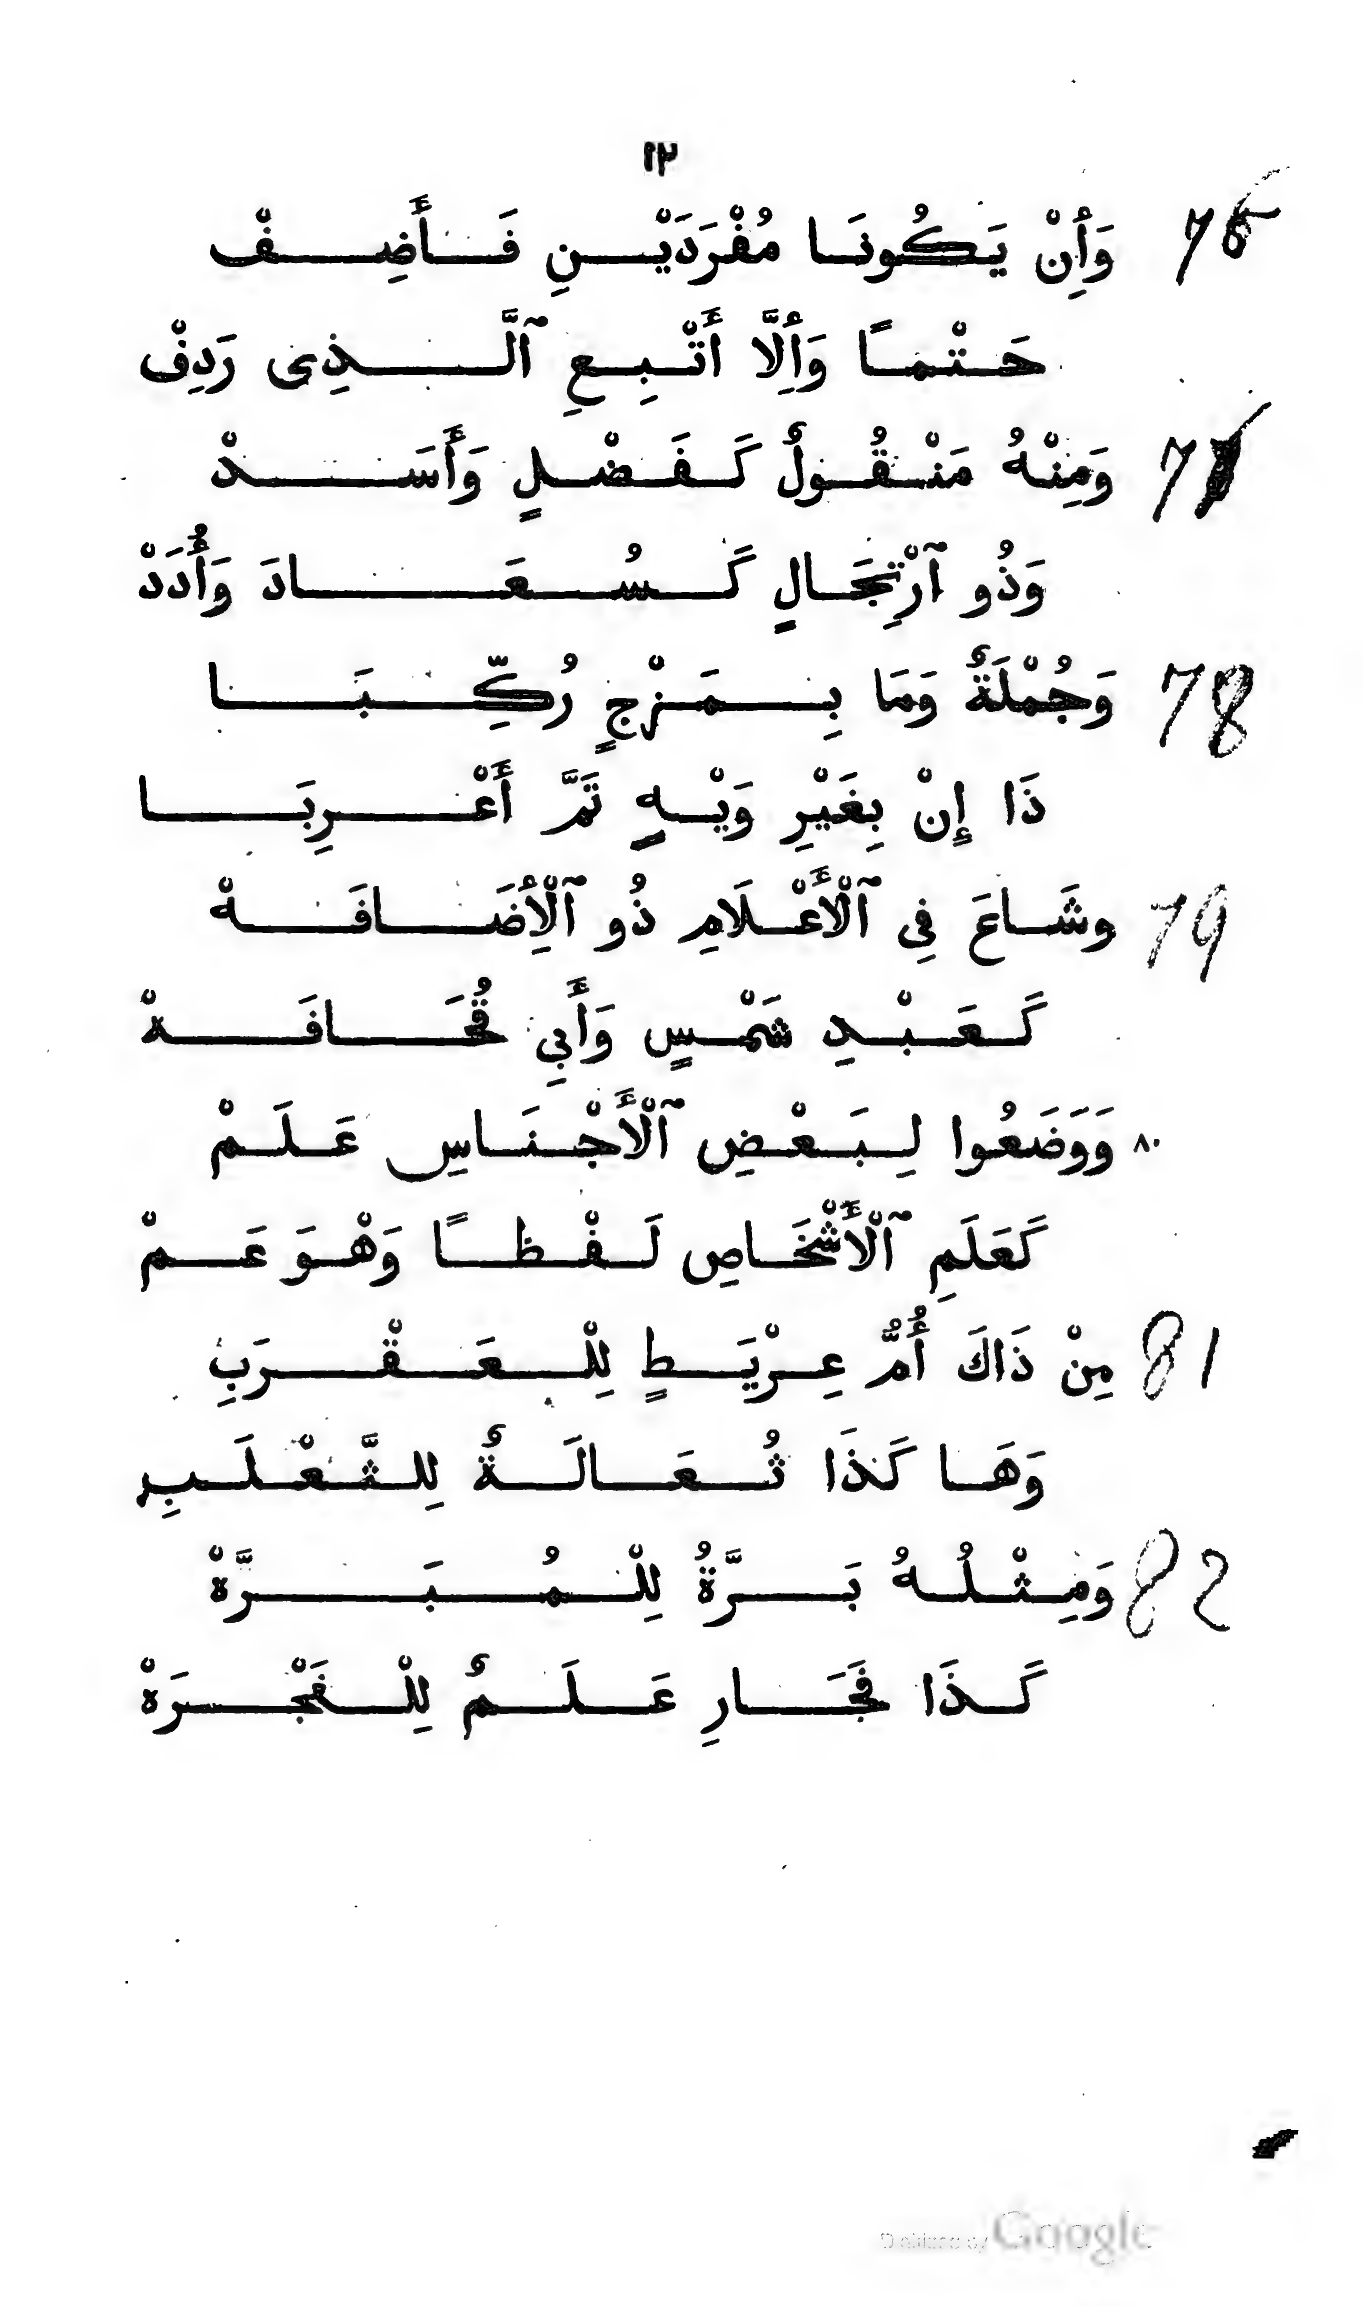 ١٢
وَأِنْ يَكُونَا مُفْرَدَيْنِ فَأَضِفْ 76
حَتْمًا وَأِلَّا أَتْبِعِ ٱلَّذِى رَدِفْ
وَمِنْهُ مَنْقُولٌ كَفَضْلٍ وَأَسَدْ
وَذُو ٱرْتِجَالٍ كَسُعَادَ وَأُدَدْ
وَجُمْلَةٌ وَمَا بِمَزْجٍ رُكِّبَا 78
ذَا إِنْ بِغَيْرِ وَيْهٍ تَمَّ أَعْرِبَا
وشَاعَ فِى ٱلْأَعْلَامِ ذُو ٱلْأِضَافَهْ 79
كَعَبْدِ شَمْسٍ وَأَبِي قُحَافَهْ
٨٠ وَوَضَعُوا لِبَعْضِ ٱلْأَجْنَاسِ عَلَمْ
كَعَلَمِ ٱلْأَشْخَاصِ لَفْظًا وَهْوَ عَمْ
مِنْ ذَاكَ أُمُّ عِرْيَطٍ لِلْعَقْرَبِ 81
وَهَا كَذَا ثُعَالَةٌ لِلثَّعْلَبِ
وَمِثْلُهُ بَرَّةُ لِلْمُبَرَّةْ 82
كَذَا فَجَارِ عَلَمٌ لِلْفَجْرَةْ
Digitized by Google